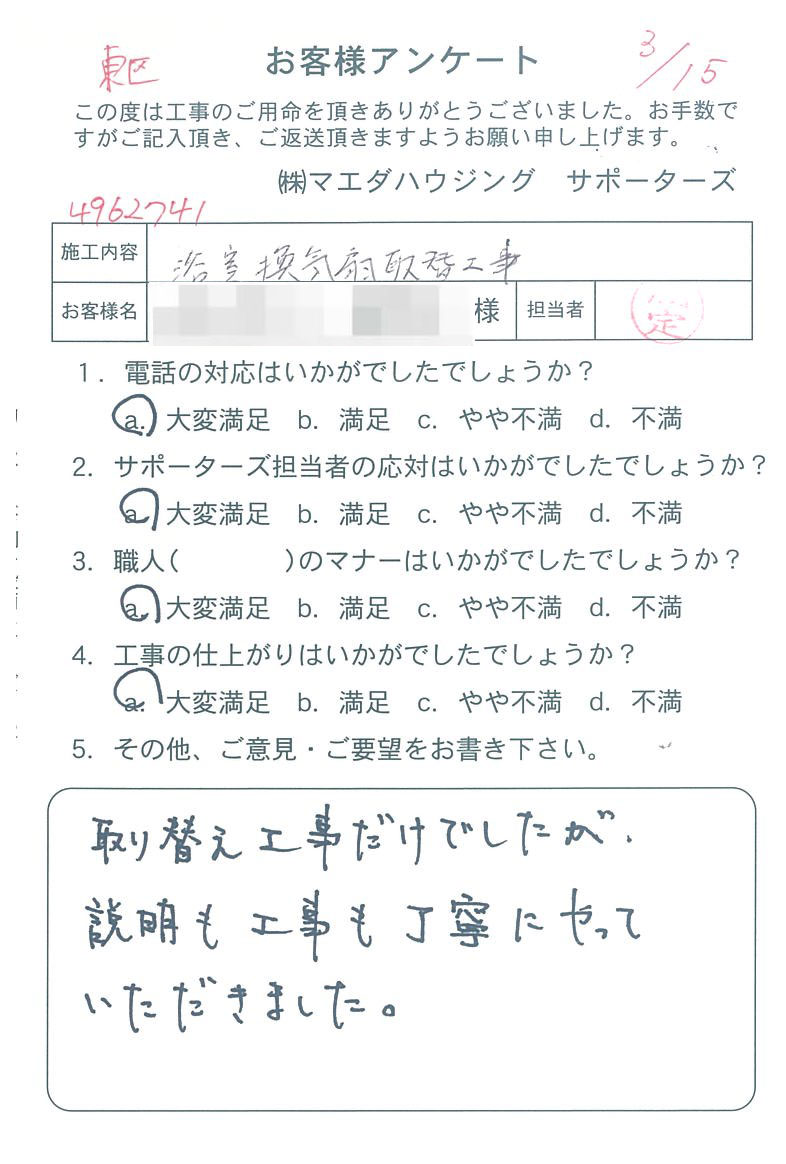 東区
お客様アンケート
3/15
この度は工事のご用命を頂きありがとうございました。お手数で
すがご記入頂き、ご返送頂きますようお願い申し上げます。
㈱マエダハウジング サポーターズ
4962741
施工内容 浴室換気扇取替工事
お客様名 様 担当者
1. 電話の対応はいかがでしたでしょうか？
a. 大変満足 b. 満足 c. やや不満 d. 不満
2. サポーターズ担当者の応対はいかがでしたでしょうか？
a. 大変満足 b. 満足 c. やや不満 d. 不満
3. 職人( )のマナーはいかがでしたでしょうか？
a. 大変満足 b. 満足 c. やや不満 d. 不満
4. 工事の仕上がりはいかがでしたでしょうか？
a. 大変満足 b. 満足 c. やや不満 d. 不満
5. その他、ご意見・ご要望をお書き下さい。
取り替え工事だけでしたが、
説明も工事も丁寧にやって
いただきました。